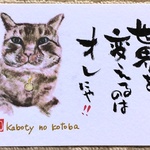 を
変えるのは
オレにゃ!!
Kabocy no kotoba